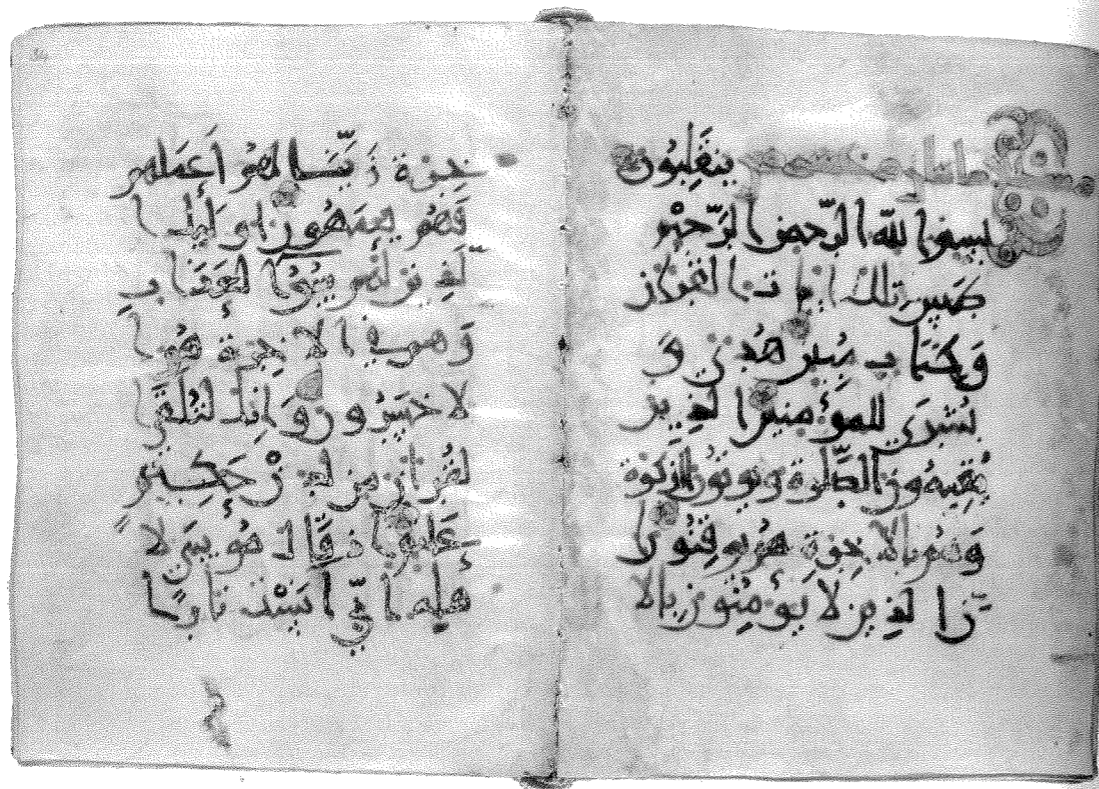 ينقلبون
بسم الله الرّحمن الرّحيم
طس تلك ايات القران
وكتاب مبين هدى و
بشرى للمؤمنين الذين
يقيمون الصّلوة ويوتون الزكوة
وهم بالاخرة هم يوقنون ا
نّ الذين لا يؤمنون بالا
خرة زيّنا لهم أعملهم
فهم يعمهون اوليك ا
لّذين لهم سوء العذاب
وهم في الاخرة هم ا
لاخسرون وانك لتلقّى ا
لقرآن من لدن حكيم
عليم إذ قال موسى لا
هله إنّي آنست نارًا